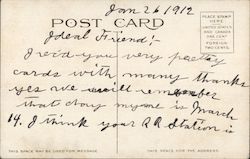 Jan 26 1912
POST CARD
PLACE STAMP HERE
UNITED STATES
AND CANADA
ONE CENT
FOREIGN
TWO CENTS
Ideal Friend!-
I rec'd you very pretty
cards with many thanks
yes we will remember
that day mine is March
19. I think your RR Station is
THIS SPACE MAY BE USED FOR MESSAGE
THIS SPACE FOR THE ADDRESS.